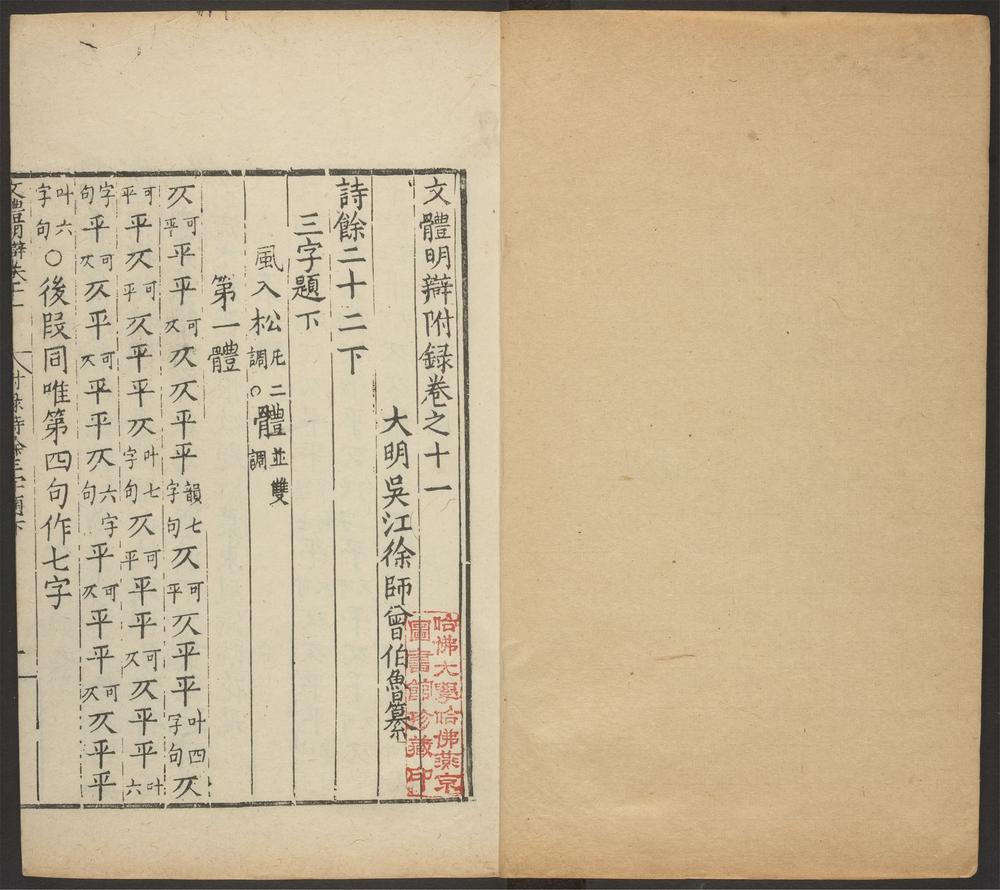 文體明辯附録卷之十一
大明吳江徐師曾伯魯纂
詩餘二十二下
三字題下
風入松凡二調○體並雙調
第一體
仄可平平平可仄仄仄平平韻七字句仄可平仄平平叶四字句仄
可平平仄可平仄平平仄叶七字句仄可平平平可仄仄平平叶六
字句平可仄仄平可仄平仄六字句平可仄平平可仄仄平平
叶六字句○後段同唯第四句作七字
文體明辯卷十一
附録詩餘三字題下
一
哈佛大學哈佛燕京
圖書館珍藏印